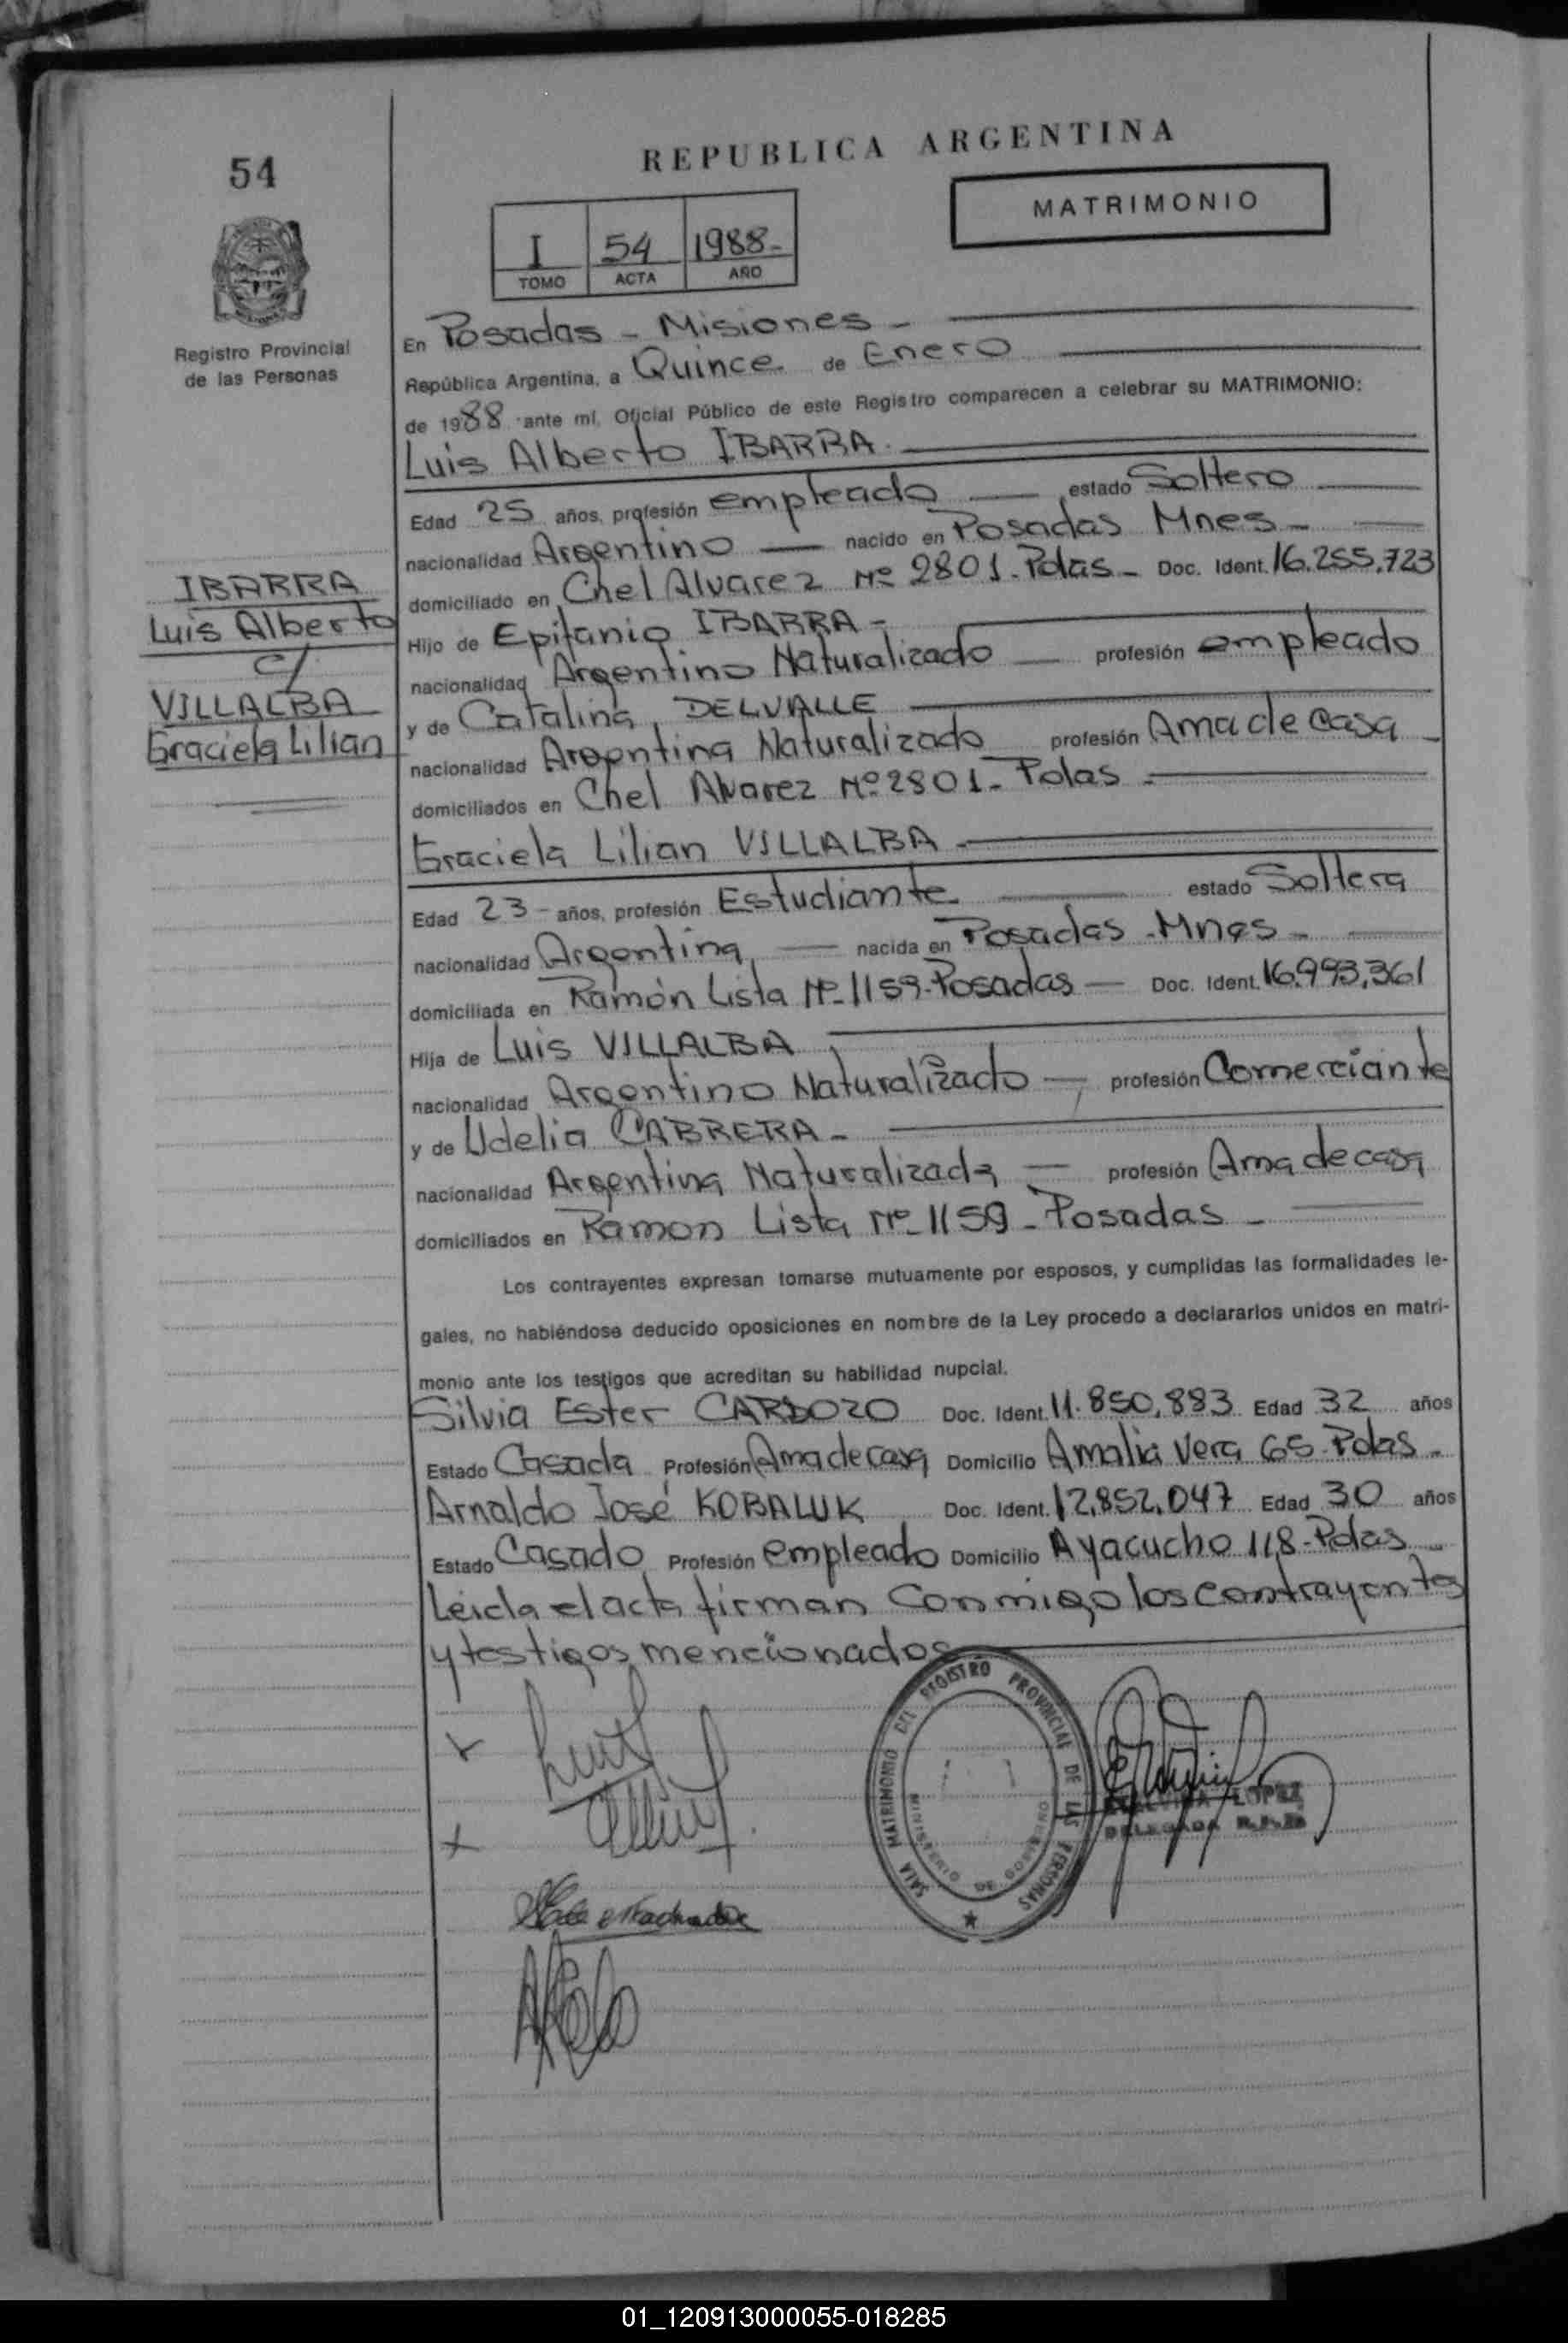 54
Registro Provincial
de las Personas
REPUBLICA ARGENTINA
MATRIMONIO
I 54 1988-
TOMO ACTA AÑO
IBARRA
Luis Alberto
c/
VILLALBA
Graciela Lilian
En Posadas - Misiones -
República Argentina, a Quince de Enero
de 1988 ante mí, Oficial Público de este Registro comparecen a celebrar su MATRIMONIO:
Luis Alberto IBARRA
Edad 25 años, profesión empleado estado Soltero
nacionalidad Argentino nacido en Posadas Mnes-
domiciliado en Chel Alvarez Nº 2801-Pdas- Doc. Ident. 16.255.723
Hijo de Epifanio IBARRA-
nacionalidad Argentino Naturalizado profesión empleado
y de Catalina DELVALLE
nacionalidad Argentina Naturalizado profesión Ama de Casa
domiciliados en Chel Alvarez Nº 2801-Pdas
Graciela Lilian VILLALBA
Edad 23- años, profesión Estudiante- estado Soltera
nacionalidad Argentina nacida en Posadas-Mnes-
domiciliada en Ramón Lista Nº 1159-Posadas Doc. Ident. 16.993.361
Hija de Luis VILLALBA
nacionalidad Argentino Naturalizado profesión Comerciante
y de Udelia CABRERA-
nacionalidad Argentina Naturalizada profesión Ama de casa
domiciliados en Ramon Lista Nº 1159-Posadas-
Los contrayentes expresan tomarse mutuamente por esposos, y cumplidas las formalidades le-
gales, no habiéndose deducido oposiciones en nombre de la Ley procedo a declararlos unidos en matri-
monio ante los testigos que acreditan su habilidad nupcial.
Silvia Ester CARDOZO Doc. Ident. 11.850.883 Edad 32 años
Estado Casada Profesión Ama de casa Domicilio Amalia Vera 65-Pdas-
Arnaldo José KOBALUK Doc. Ident. 12.852.047 Edad 30 años
Estado Casado Profesión empleado Domicilio Ayacucho 118-Pdas
Leida el acta firman Conmigo los contrayentes
y testigos mencionados
SALA MATRIMONIO DEL REGISTRO PROVINCIAL DE LAS PERSONAS
MINISTERIO DE GOBIERNO
LOPEZ
DELEGADA R.P.P.
01_120913000055-018285